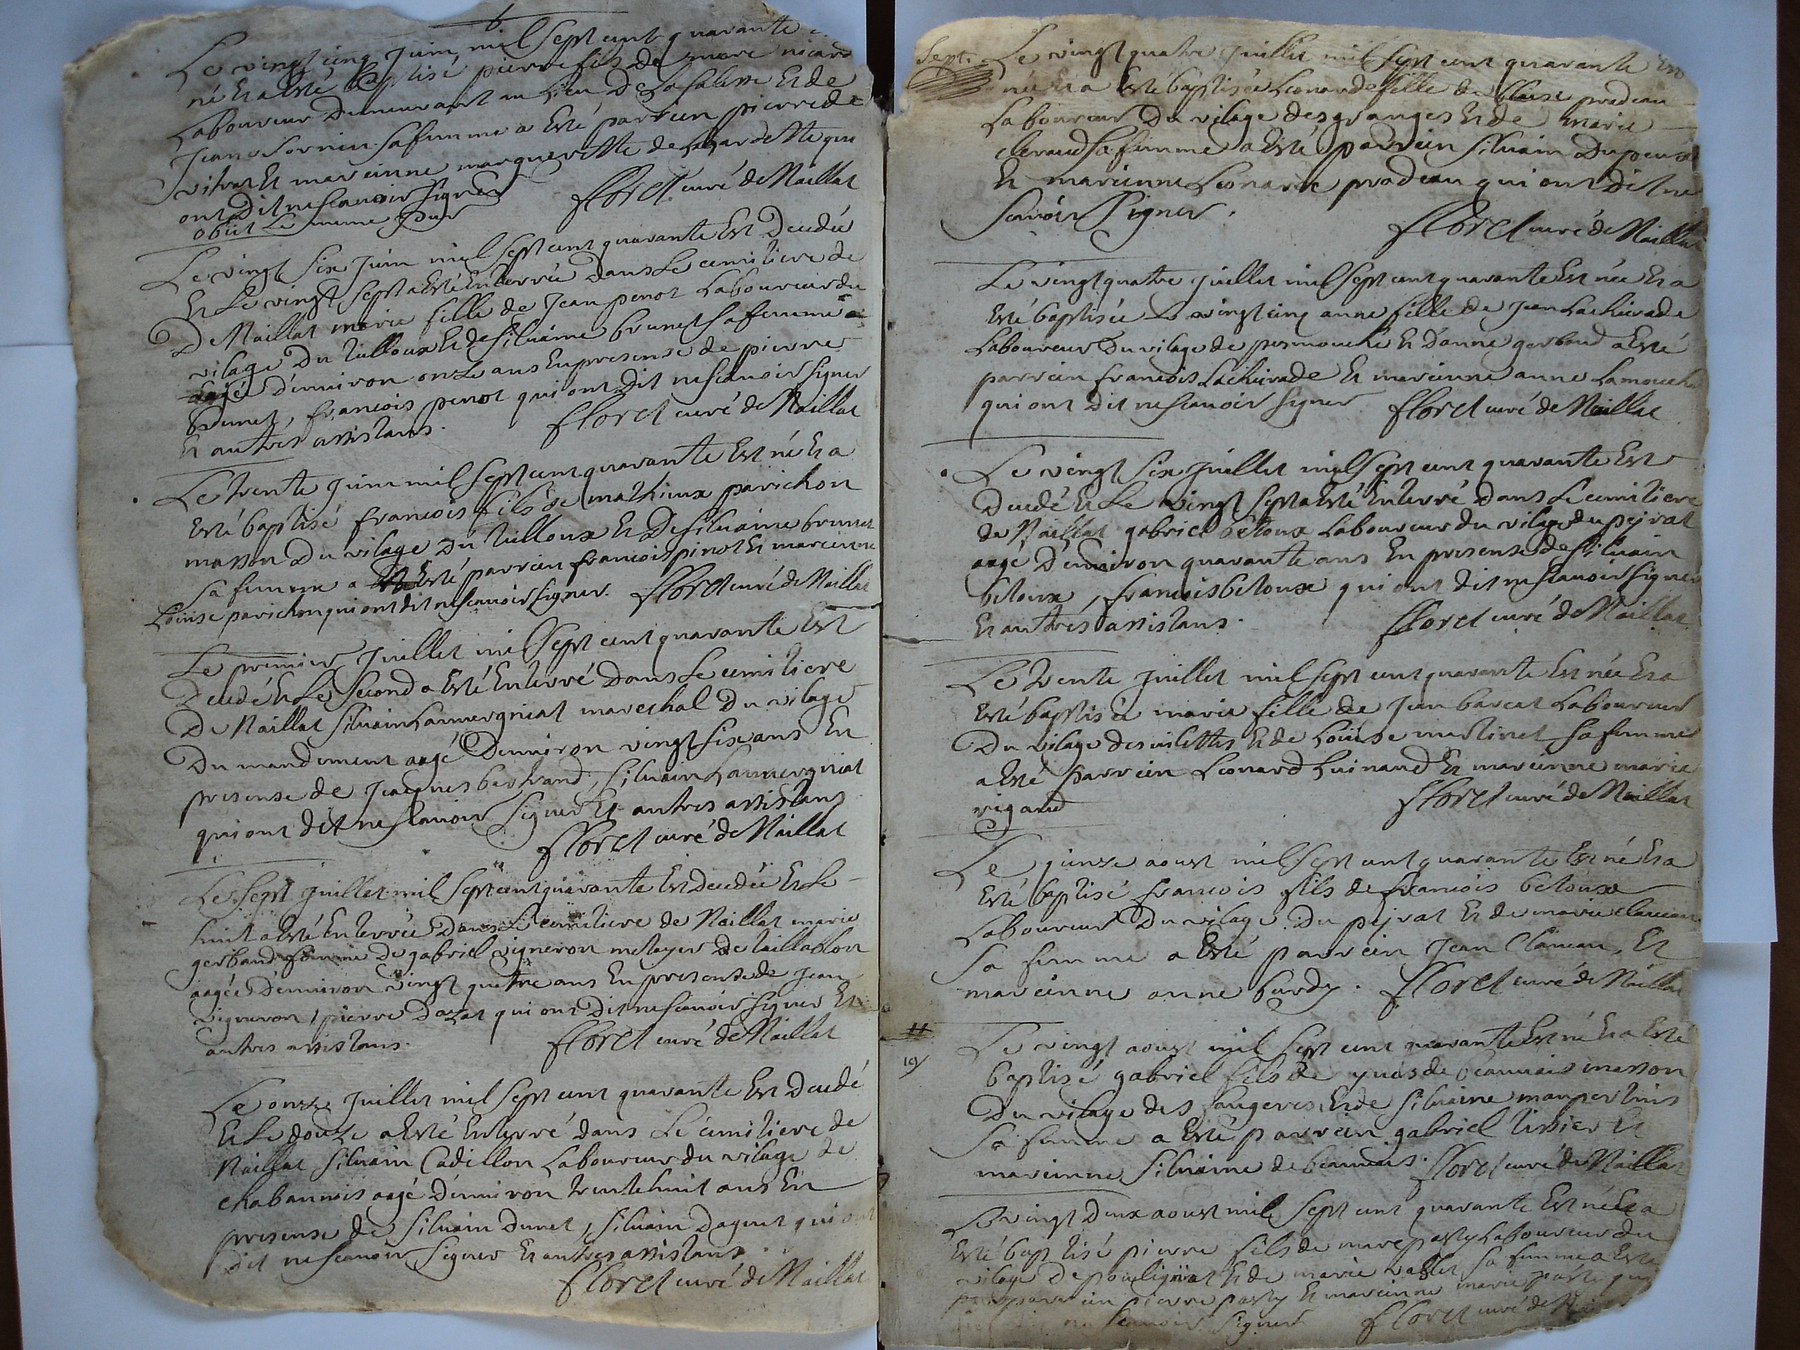 6
Le vingt cinq juin mil sept cent quarante
né et a esté baptisé pierre fils de marc
Laboureur demeurant au lieu de et de
Jeane Sornin sa femme a esté parrein pierre de
vitrat et mareinne marguerite de qui
ont dit ne scavoir signer floret curé de Naillat
obiit le meme jour
Le vingt six juin mil sept cent quarante est decedée
et le vingt sept a esté enterrée dans le cemitiere de
de Naillat marie fille de jean penot Laboureur du
vilage du tilloux et de silvaine brunet sa femme
aagé d'environ onze ans en presense de pierre
brunet, francois penot qui ont dit ne scavoir signer
et autres assistans. floret curé de Naillat
Le trente juin mil sept cent quarante est né et a
esté baptisé francois fils de mathieux parichon
masson du vilage du tilloux et de silvaine brunet
sa femme a esté parrein francois pinot et mareinne
Louise parichon qui ont dit ne scavoir signer. floret curé de Naillat
Le premier juillet mil sept cent quarante est
decedé et le second a esté enterré dans le cemitiere
de Naillat silvain Lauvergniat mareschal du vilage
du mandement aagé d'environ vingt six ans en
presense de jacques bertrand, silvain Lauvergniat
qui ont dit ne scavoir signer et autres assistans
floret curé de Naillat
Le sept juillet mil sept cent quarante est decedée et le
huit a esté enterrée dans le cemitiere de Naillat marie
gerbaud femme de gabriel vigneron metayer de
aagée d'environ vingt quatre ans en presense de jean
vigneron, pierre qui ont dit ne scavoir signer et
autres assistans. floret curé de Naillat
Le onze juillet mil sept cent quarante est decedé
et le douze a esté enterré dans le cemitiere de
Naillat silvain Cadillon Laboureur du vilage de
chabannois aagé d'environ trente huit ans en
presense de silvain dunet, silvain daguet qui ont
dit ne scavoir signer et autres assistans
floret curé de Naillat
sept. Le vingt quatre juillet mil sept cent quarante est
née et a esté baptisée Leonarde fille de blaise pradeau
Laboureur du vilage des granges et de marie
sa femme a esté parrein silvain dupeux
et mareinne Leonarde pradeau qui ont dit ne
scavoir signer. floret curé de Naillat
Le vingt quatre juillet mil sept cent quarante est née et a
esté baptisée le vingt cinq anne fille de jean Lachivade
Laboureur du vilage de et d'anne gerbaud a esté
parrein francois Lachivade et mareinne anne Lamouche
qui ont dit ne scavoir signer floret curé de Naillat
Le vingt six juillet mil sept cent quarante est
decedé et le vingt sept a esté enterré dans le cemitiere
de Naillat gabriel betoux Laboureur du vilage du pejrat
aagé d'environ quarante ans en presense de silvain
betoux, francois betoux qui ont dit ne scavoir signer
et autres assistans. floret curé de Naillat
Le trente juillet mil sept cent quarante est née et a
esté baptisée marie fille de jean barcat Laboureur
du vilage des vilettes et de Loüise martinet sa femme
a esté parrein Leonard Luinaud et mareinne marie
rigaud floret curé de Naillat
Le quinze aoust mil sept cent quarante est né et a
esté baptisé francois fils de francois betoux
Laboureur du vilage du pejrat et de marie
sa femme a esté parrein jean et
mareinne anne burdy. floret curé de Naillat
19
Le vingt aoust mil sept cent quarante est né et a esté
baptisé gabriel fils de yves de beauvais masson
du vilage des fougeres et de silvaine maupertuis
sa femme a esté parrein gabriel tixier et
mareinne silvaine de beauvais. floret curé de Naillat
Le vingt deux aoust mil sept cent quarante est né et a
esté baptisé pierre fils de marc pasty Laboureur du
vilage de pouligniat et de marie vallet sa femme a esté
parrein pierre pasty et mareinne marie pasty qui
ne scavoir signer floret curé de